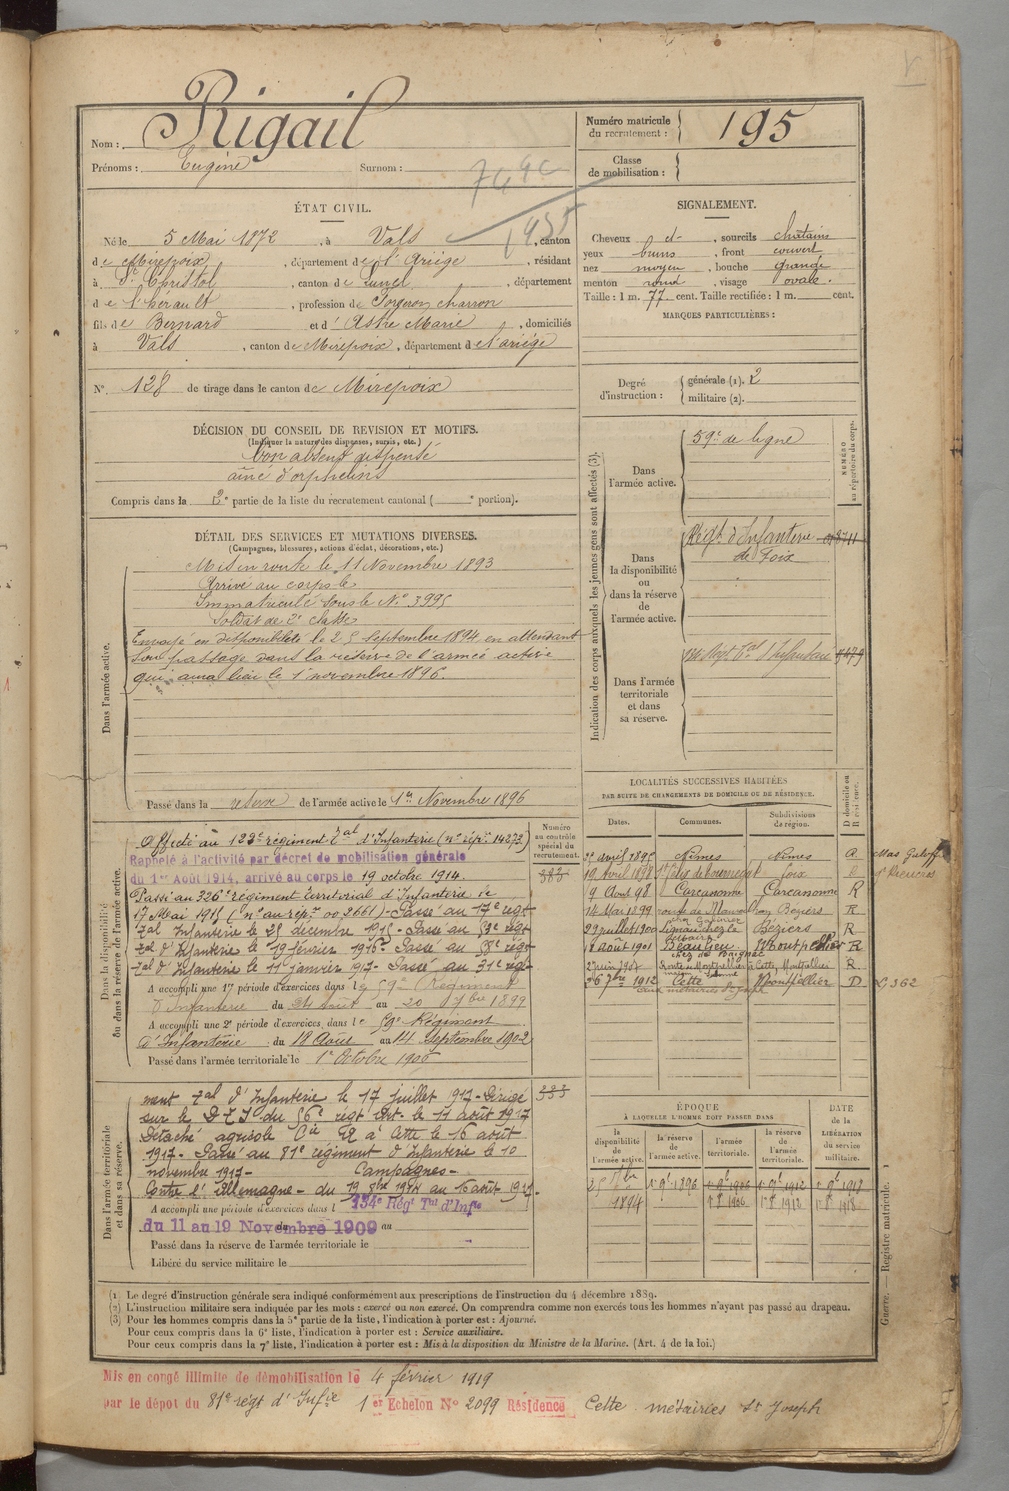 Nom : Rigail
Prénoms : Eugène Surnom :
Numéro matricule du recrutement : 195
Classe de mobilisation :
ÉTAT CIVIL.
Né le 5 Mai 1872, à Vals, canton
de Mirepoix, département de l'Ariège, résidant
à St Christol, canton de Lunel, département
de l'hérault, profession de forgeron charron
fils de Bernard et d'Astre Marie, domiciliés
à Vals, canton de Mirepoix, département de l'ariège
N° 128 de tirage dans le canton de Mirepoix
SIGNALEMENT.
Cheveux et, sourcils châtains
yeux bruns, front couvert
nez moyen, bouche grande
menton rond, visage ovale.
Taille : 1 m. 77 cent. Taille rectifiée : 1 m. cent.
MARQUES PARTICULIÈRES :
Degré d'instruction : générale (1). 2
militaire (2).
DÉCISION DU CONSEIL DE REVISION ET MOTIFS.
(Indiquer la nature des dispenses, sursis, etc.)
bon absent dispensé
aîné d'orphelins
Compris dans la 2e partie de la liste du recrutement cantonal ( e portion).
DÉTAIL DES SERVICES ET MUTATIONS DIVERSES.
(Campagnes, blessures, actions d'éclat, décorations, etc.)
Dans l'armée active.
Mis en route le 11 Novembre 1893
Arrivé au corps le
Immatriculé sous le N° 3995
Soldat de 2e classe
Envoyé en disponibilité le 25 Septembre 1894 en attendant
son passage dans la réserve de l'armée active
qui aura lieu le 1 novembre 1896.
Passé dans la réserve de l'armée active le 1er Novembre 1896
Indication des corps auxquels les jeunes gens sont affectés (3).
NUMÉRO au répertoire du corps.
Dans l'armée active.
59e de ligne
Dans la disponibilité ou dans la réserve de l'armée active.
Régt d'Infanterie
de Foix
Dans l'armée territoriale et dans sa réserve.
Dans la disponibilité ou dans la réserve de l'armée active.
Numéro au contrôle spécial du recrutement.
333
Affecté au 122e régiment tal d'Infanterie (n° rép. 14273)
Rappelé à l'activité par décret de mobilisation générale
du 1er Août 1914, arrivé au corps le 19 octobre 1914.
Passé au 326e régiment territorial d'Infanterie le
17 Mai 1915 (n° au rép. 00.2661) - Passé au 17e régt
tal Infanterie le 25 décembre 1915 - Passé au régt
tal d'Infanterie le 19 février 1916 - Passé au régt
tal d'Infanterie le 11 janvier 1917 - Passé au 31e régi
A accompli une 1re période d'exercices dans le 59e Régiment
d'Infanterie du 24 Août au 20 7bre 1899
A accompli une 2e période d'exercices dans le 59e Régiment
d'Infanterie du 18 Août au 14 Septembre 1902
Passé dans l'armée territoriale le 1er Octobre 1906
LOCALITÉS SUCCESSIVES HABITÉES
PAR SUITE DE CHANGEMENTS DE DOMICILE OU DE RÉSIDENCE.
Dates. Communes. Subdivisions de région. D domicile ou R résidence.
avril 1895 Nîmes Nîmes
19 Avril 1898 Foix D
9 Août 98 Carcanonne Carcanonne R
14 Mai 1899 Beziers R
29 juillet 1900 Lignan chez le Beziers R
18 août 1901 Beaulieu Montpellier R
2 juin 1907 Route de Montpellier à Cette, Montpellier R
26 7bre 1912 Cette Montpellier D
Dans l'armée territoriale et dans sa réserve.
333
ment tal d'Infanterie le 17 juillet 1917 - Dirigé
sur le D T I du 56e régt Inf. le 11 août 1917
Détaché agricole Cie à Cette le 16 août
1917 - Passé au 81e régiment d'Infanterie le 10
novembre 1917 - Campagnes -
Contre l'Allemagne - du 19 8bre 1914 au 16 août 1917.
A accompli une période d'exercices dans l 134e Régt Tial d'Infie
du 11 au 19 Novembre 1909 au
Passé dans la réserve de l'armée territoriale le
Libéré du service militaire le
ÉPOQUE
À LAQUELLE L'HOMME DOIT PASSER DANS
DATE de la LIBÉRATION du service militaire.
la disponibilité de l'armée active. la réserve de l'armée active. l'armée territoriale. la réserve de l'armée territoriale.
25 7bre 1894 1er 9bre 1896 1er 9bre 1906 1er 9bre 1912 1er 9bre 1918
1er 8bre 1906 1er 8bre 1912 1er 8bre 1918
Guerre. — Registre matricule.
(1) Le degré d'instruction générale sera indiqué conformément aux prescriptions de l'instruction du 4 décembre 1889.
(2) L'instruction militaire sera indiquée par les mots : exercé ou non exercé. On comprendra comme non exercés tous les hommes n'ayant pas passé au drapeau.
(3) Pour les hommes compris dans la 5e partie de la liste, l'indication à porter est : Ajourné.
Pour ceux compris dans la 6e liste, l'indication à porter est : Service auxiliaire.
Pour ceux compris dans la 7e liste, l'indication à porter est : Mis à la disposition du Ministre de la Marine. (Art. 4 de la loi.)
Mis en congé illimité de démobilisation le 4 février 1919
par le dépot du 81e régt d'Infie 1er Echelon N° 2099 Résidence Cette métairies St Joseph